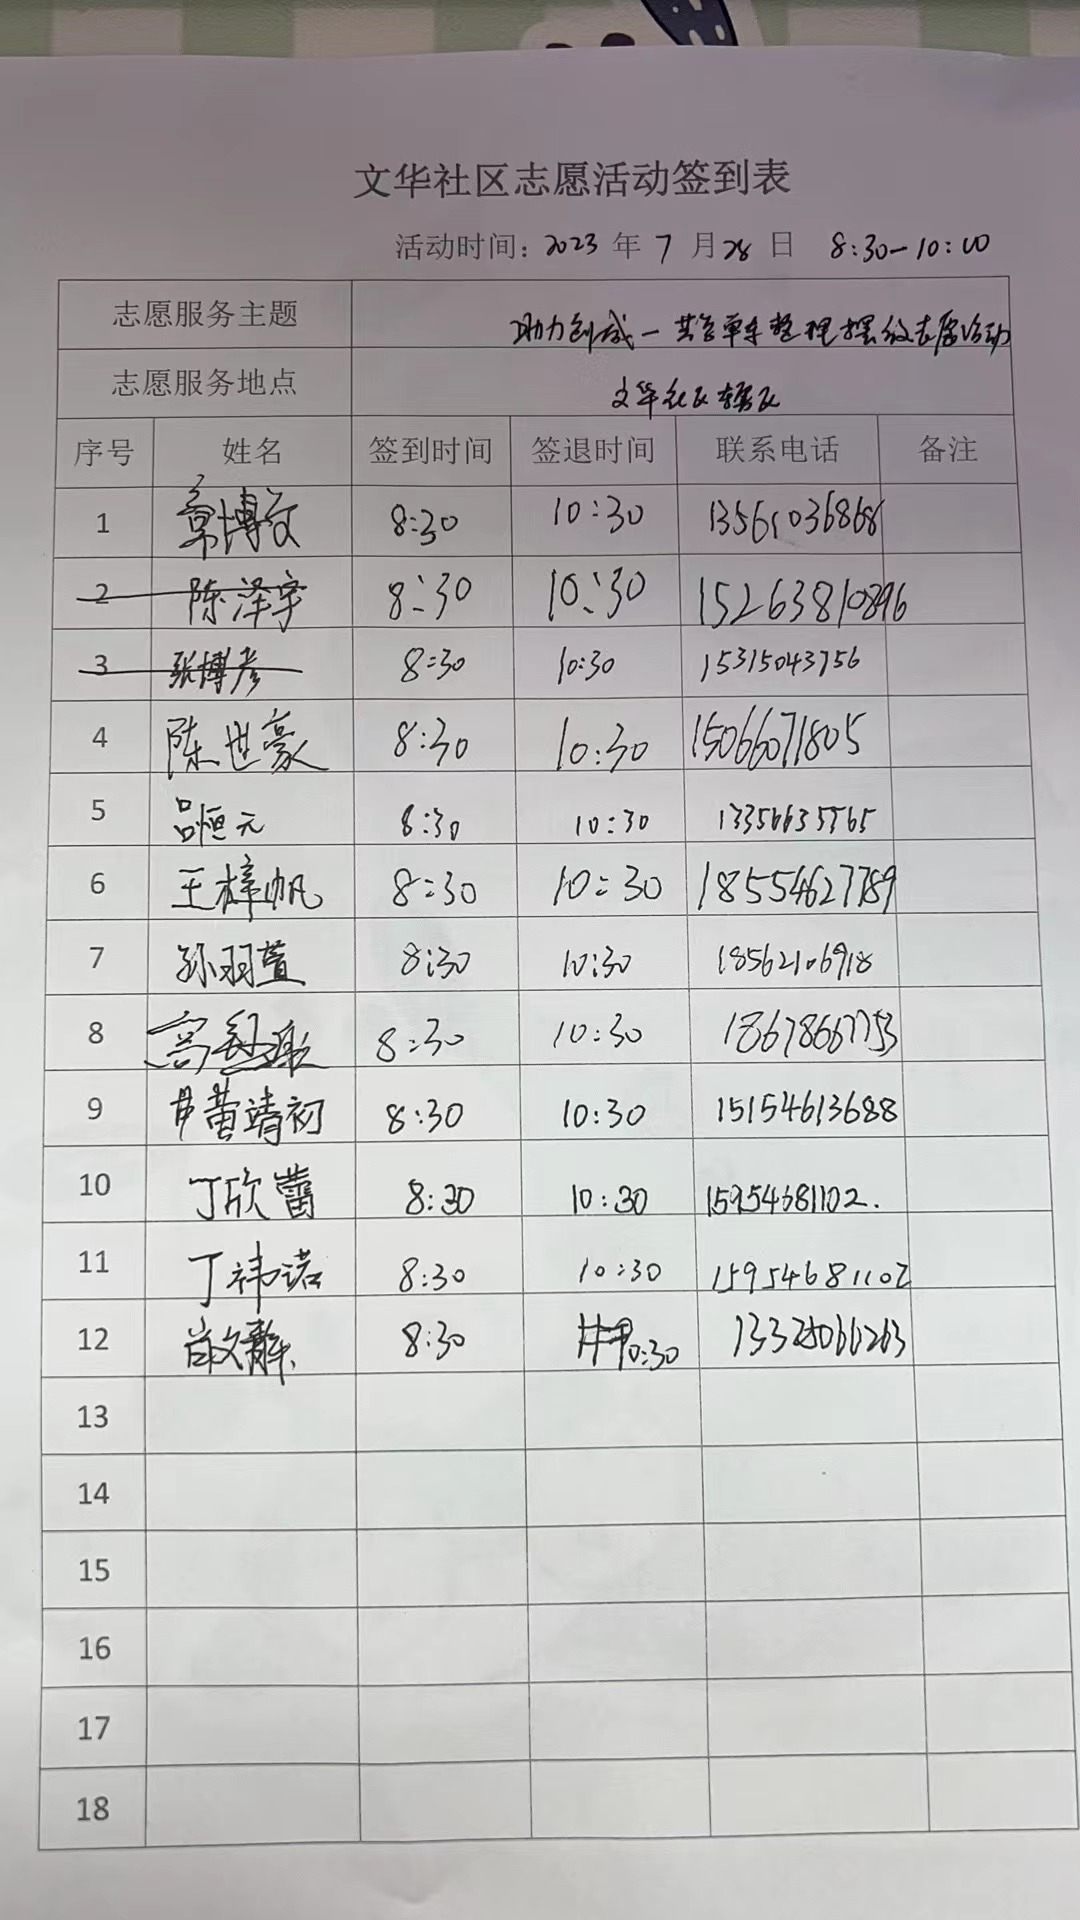 文华社区志愿活动签到表
活动时间：2023 年 7 月 28 日 8:30-10:00
志愿服务主题 助力创城一共享单车整理摆放志愿活动
志愿服务地点 文华社区辖区
序号 姓名 签到时间 签退时间 联系电话 备注
1 章博文 8:30 10:30 13561036868
2 陈泽宇 8:30 10:30 15263810896
3 张博彦 8:30 10:30 15315043756
4 陈世豪 8:30 10:30 15066071805
5 吕恒元 8:30 10:30 13356635765
6 王梓帆 8:30 10:30 18554627789
7 孙羽萱 8:30 10:30 18562106918
8 8:30 10:30 18678667753
9 黄靖初 8:30 10:30 15154613688
10 丁欣蕾 8:30 10:30 15954681102.
11 丁祎诺 8:30 10:30 15954681102
12 肖文静 8:30 10:30 13325066263
13
14
15
16
17
18